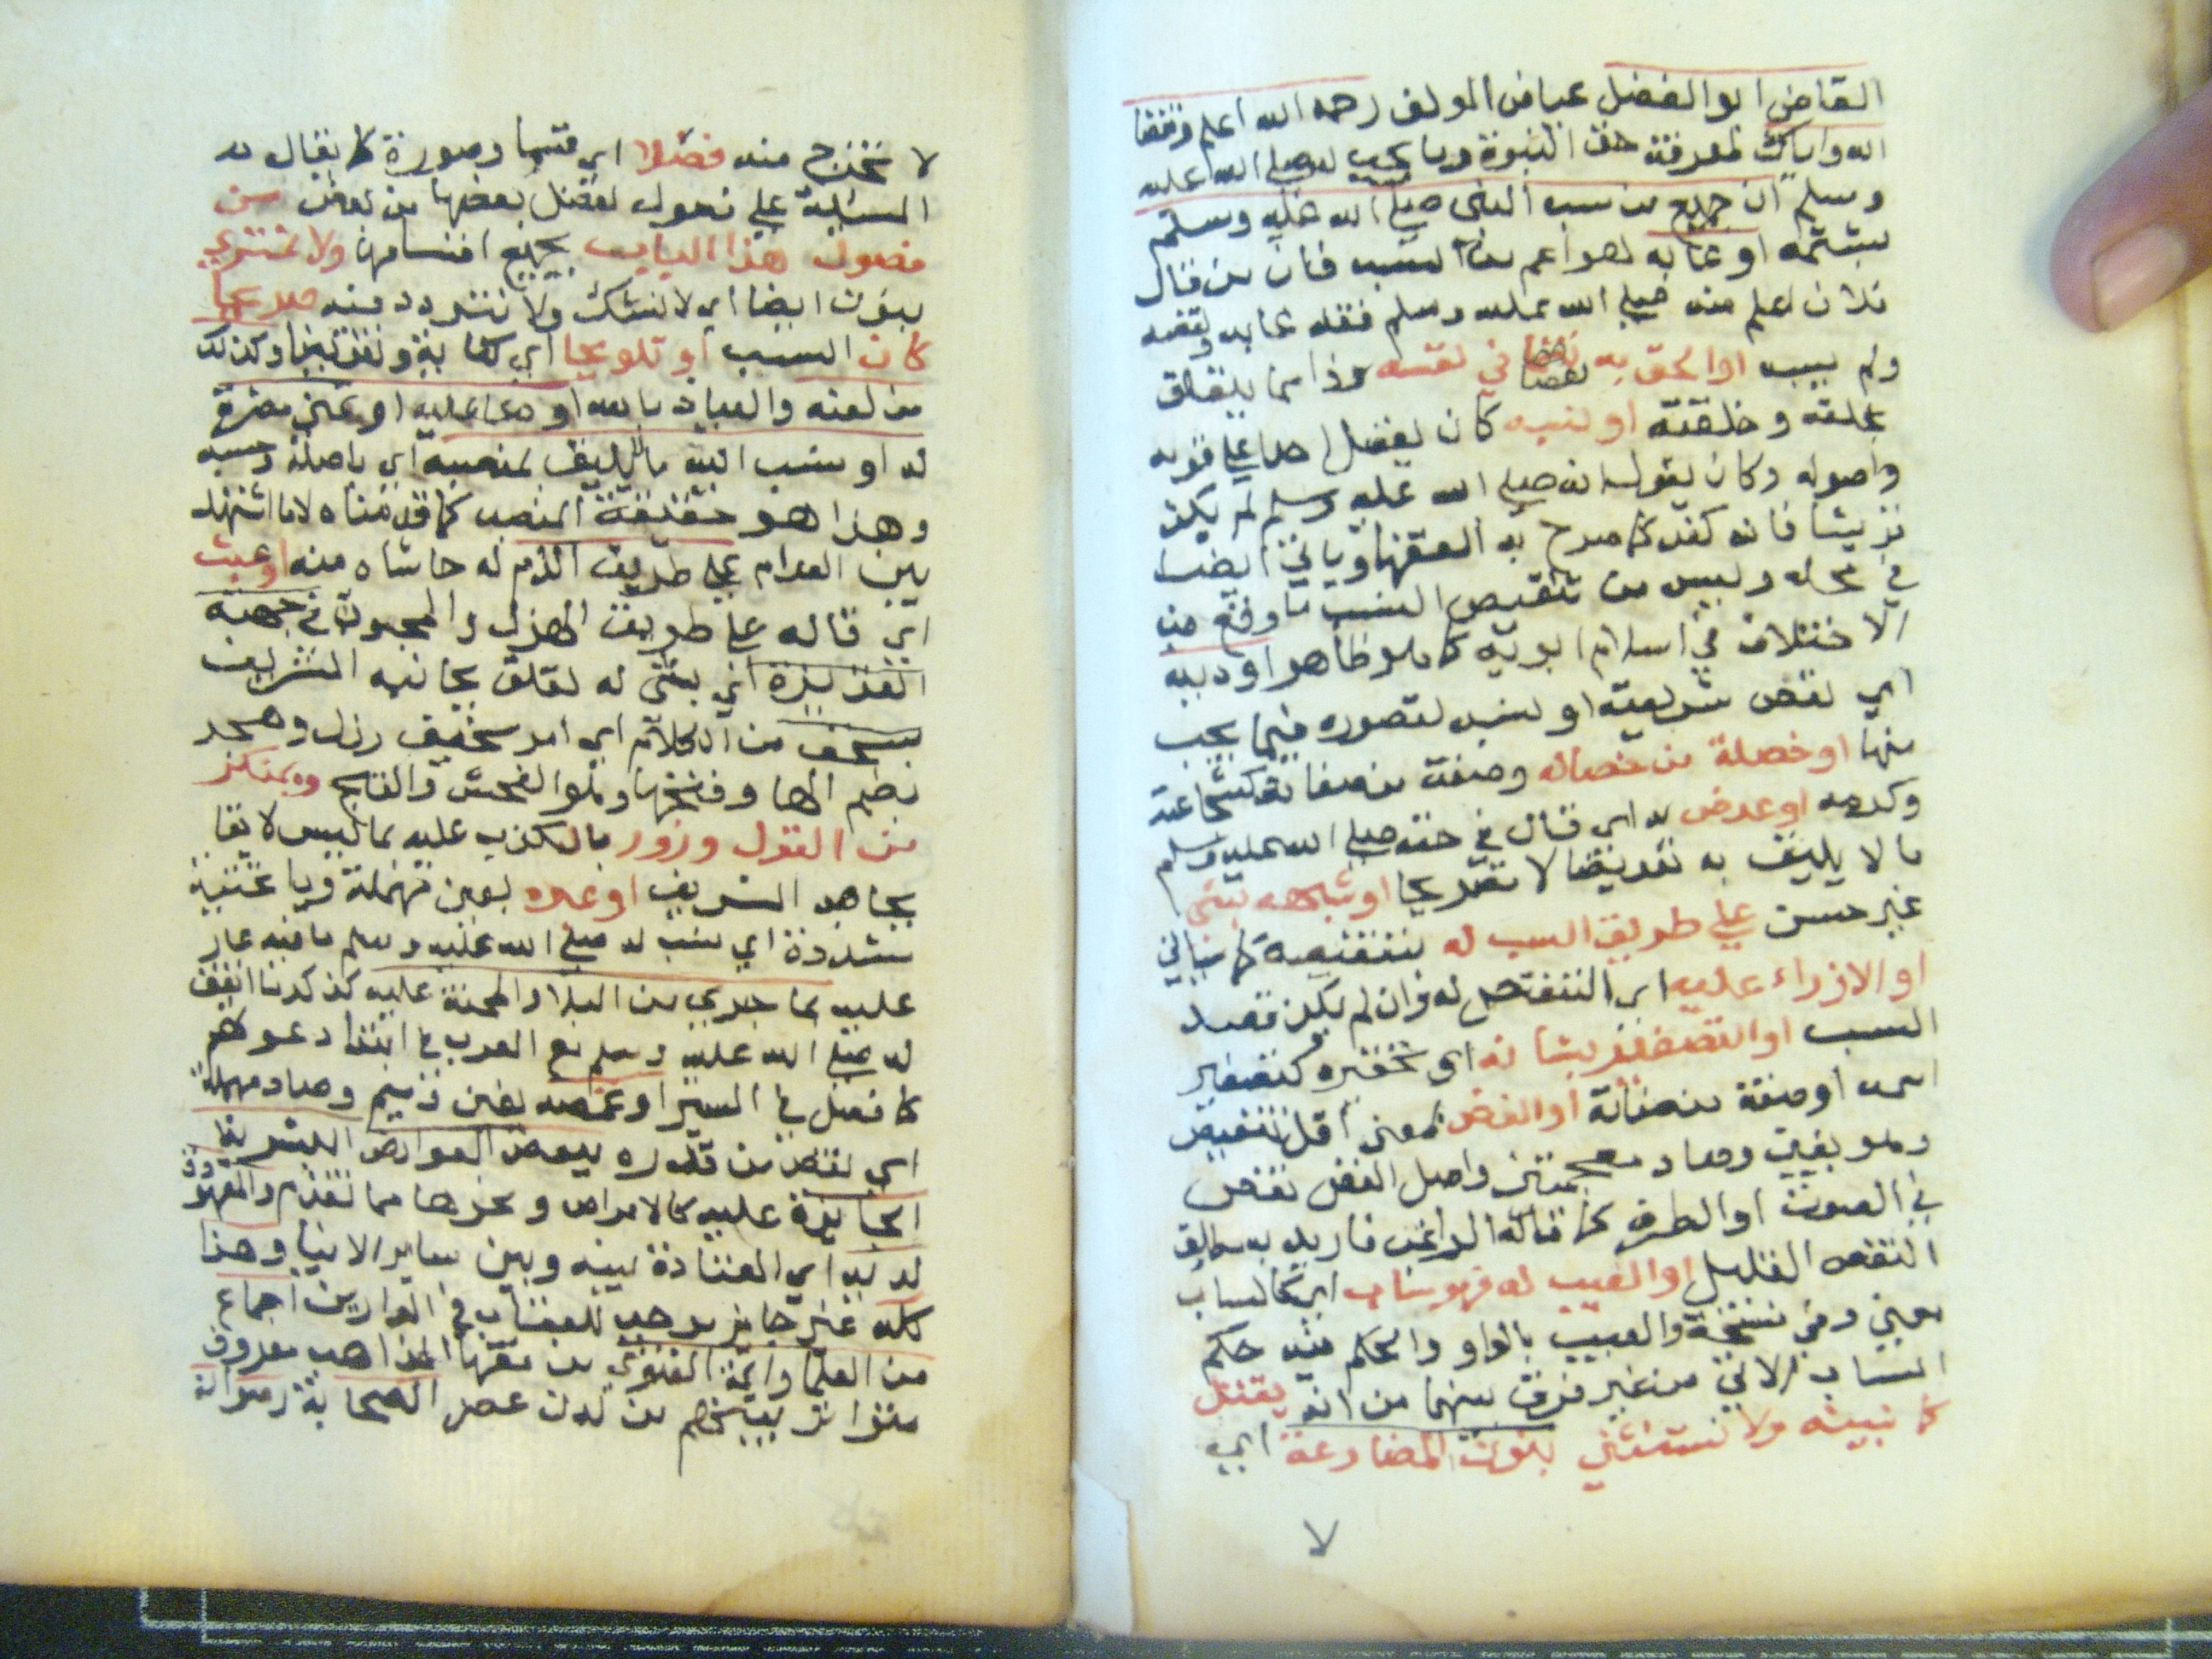 القاضي ابو الفضل عياض المولف رحمه الله اعلم وفقنا
الله واياك لمعرفة حق النبوة وما يجب له صلى الله عليه
وسلم ان جميع من سب النبي صلى الله عليه وسلم
بشتمه او عابه هو اعم من السب فان من قال
فلان اعلم منه صلى الله عليه وسلم فقد عابه ونقصه
ولم يسب او الحق به نقصا في نفسه هذا مما يتعلق
بخلقه وخلقته او نسبه كان يفضل احدا على قومه
واصوله وكان يقول انه صلى الله عليه وسلم لم يكن
قريشيا فانه كفر كما صرح به الفقها وياتي ايضا
في محله وليس من تنقيص النسب ما وقع من
الاختلاف في اسلام ابويه كما هو ظاهر او دينه
اي نقص شريعته او نسبه لقصوره فيما يجب
منها او خصلة من خصاله وصفة من صفاته كشجاعته
وكرمه او عرض به اي قال في حقه صلى الله عليه وسلم
ما لا يليق به تعريضا لا تصريحا او شبهه بشي
غير حسن على طريق السب له بتنقيصه كما سياتي
او الازراء عليه اي التنقص له وان لم يكن قصد
السب او التصغير بشانه اي تحقيره كتصغير
اسمه او صفة من صفاته او الغض بمعنى اقل تنقيص
وهو بغين وضاد معجمتين واصل الغض نقص
في الصوت او الطرف كما قاله الراغب فاريد به مطلق
النقص القليل او العيب له فهو ساب اي كالساب
بعيني وفي نسخة والعيب بالواو والحكم فيه حكم
الساب الاتي من غير فرق بينهما من انه يقتل
كما نبينه ولا نستثني بنون المضارعة اي
لا
لا نخرج منه فصلا اي قسما وصورة كما يقال له
المسئلة على فصول لفصل بعضها من بعض من
فصول هذا الباب بجميع اقسامها ولا نمتري
بنون ايضا اي لا نشك ولا نتردد فيه صريحا
كان السب او تلويحا اي كناية وتعريضا وكذلك
من لعنه والعياذ بالله او دعا عليه او تمنى مضرة
له او نسب اليه ما لا يليق بمنصبه اي باصله وحسبه
وهذا هو حقيقة المنصب كما قدمناه لا ما اشتهر
بين العوام على طريق الذم له حاشاه منه او عبث
اي قاله على طريق الهزل والمجون في جهته
العزيزة اي بشي له تعلق بجانبه الشريف
بسخف من الكلام اي امر سخيف رذل وهجر
بضم الها وفتحها وهو الفحش والقبح وبمنكر
من القول وزور بالكذب عليه بما ليس لايقا
بجاهه الشريف او عيره بعين مهملة ويا تحتية
مشددة اي نسب له صلى الله عليه وسلم ما فيه عار
عليه بما جرى من البلا والمحنة عليه كذكر ما اتفق
له صلى الله عليه وسلم مع العرب في ابتدا دعوتهم
كما فصل في السير او غمصه بغين وميم وصاد مهملة
اي نقص من قدره ببعض العوارض البشرية
الجايزة عليه كالامراض ونحوها مما تقدم والمعهودة
لديه اي المعتادة بينه وبين ساير الانبيا وهذا
كله غير جايز يوجب للعقاب في الدارين اجماع
من العلما وايمة الفتوى من فقها المذاهب معروف
متواتر بينهم من لدن عصر الصحابة رضوان